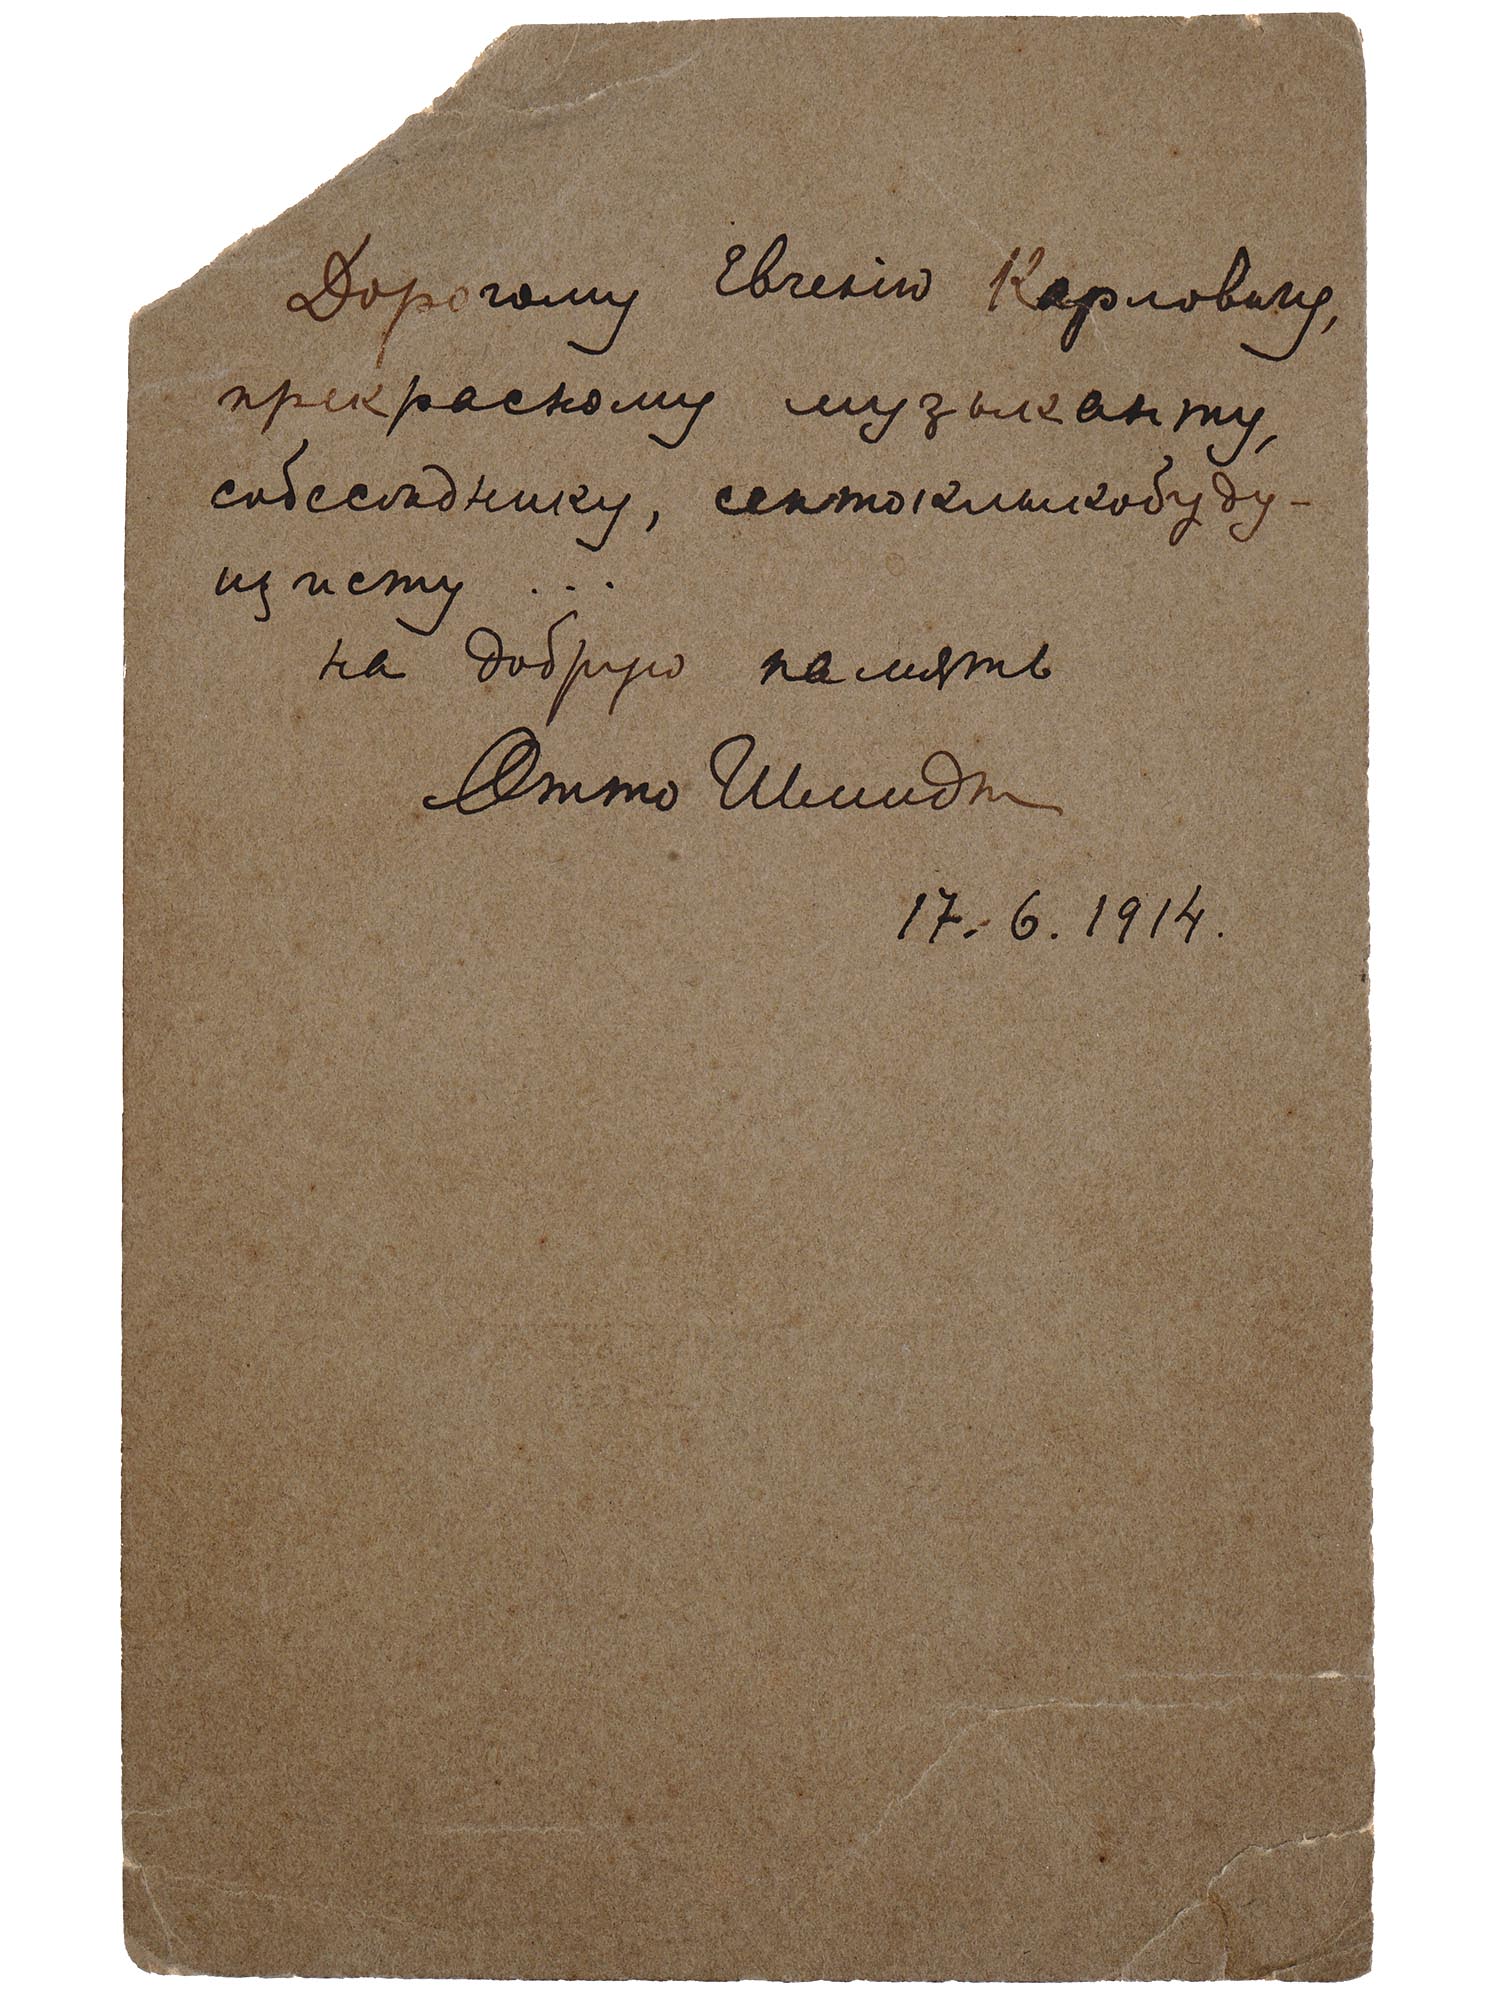 Дорогому Евгенію Карловичу,
прекрасному музыканту,
собесѣднику,
... 
на добрую память
Отто Шмидт
17.6.1914.